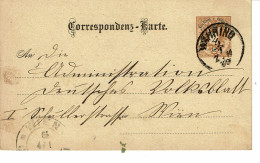 Correspondenz-Karte.
WÄHRING
An die
Administration
Deutsches Volksblatt
I Schulerstrasse Wien